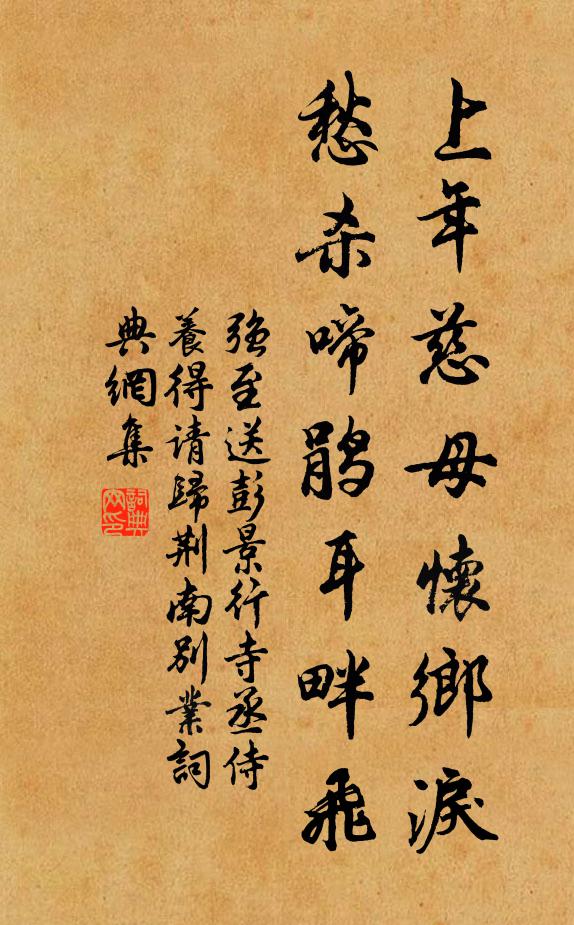 上年慈母懷鄉淚
愁杀啼鹃耳畔飛
強至送彭景行寺丞侍
養得请歸荆南别業詞
典網集
詞典网印